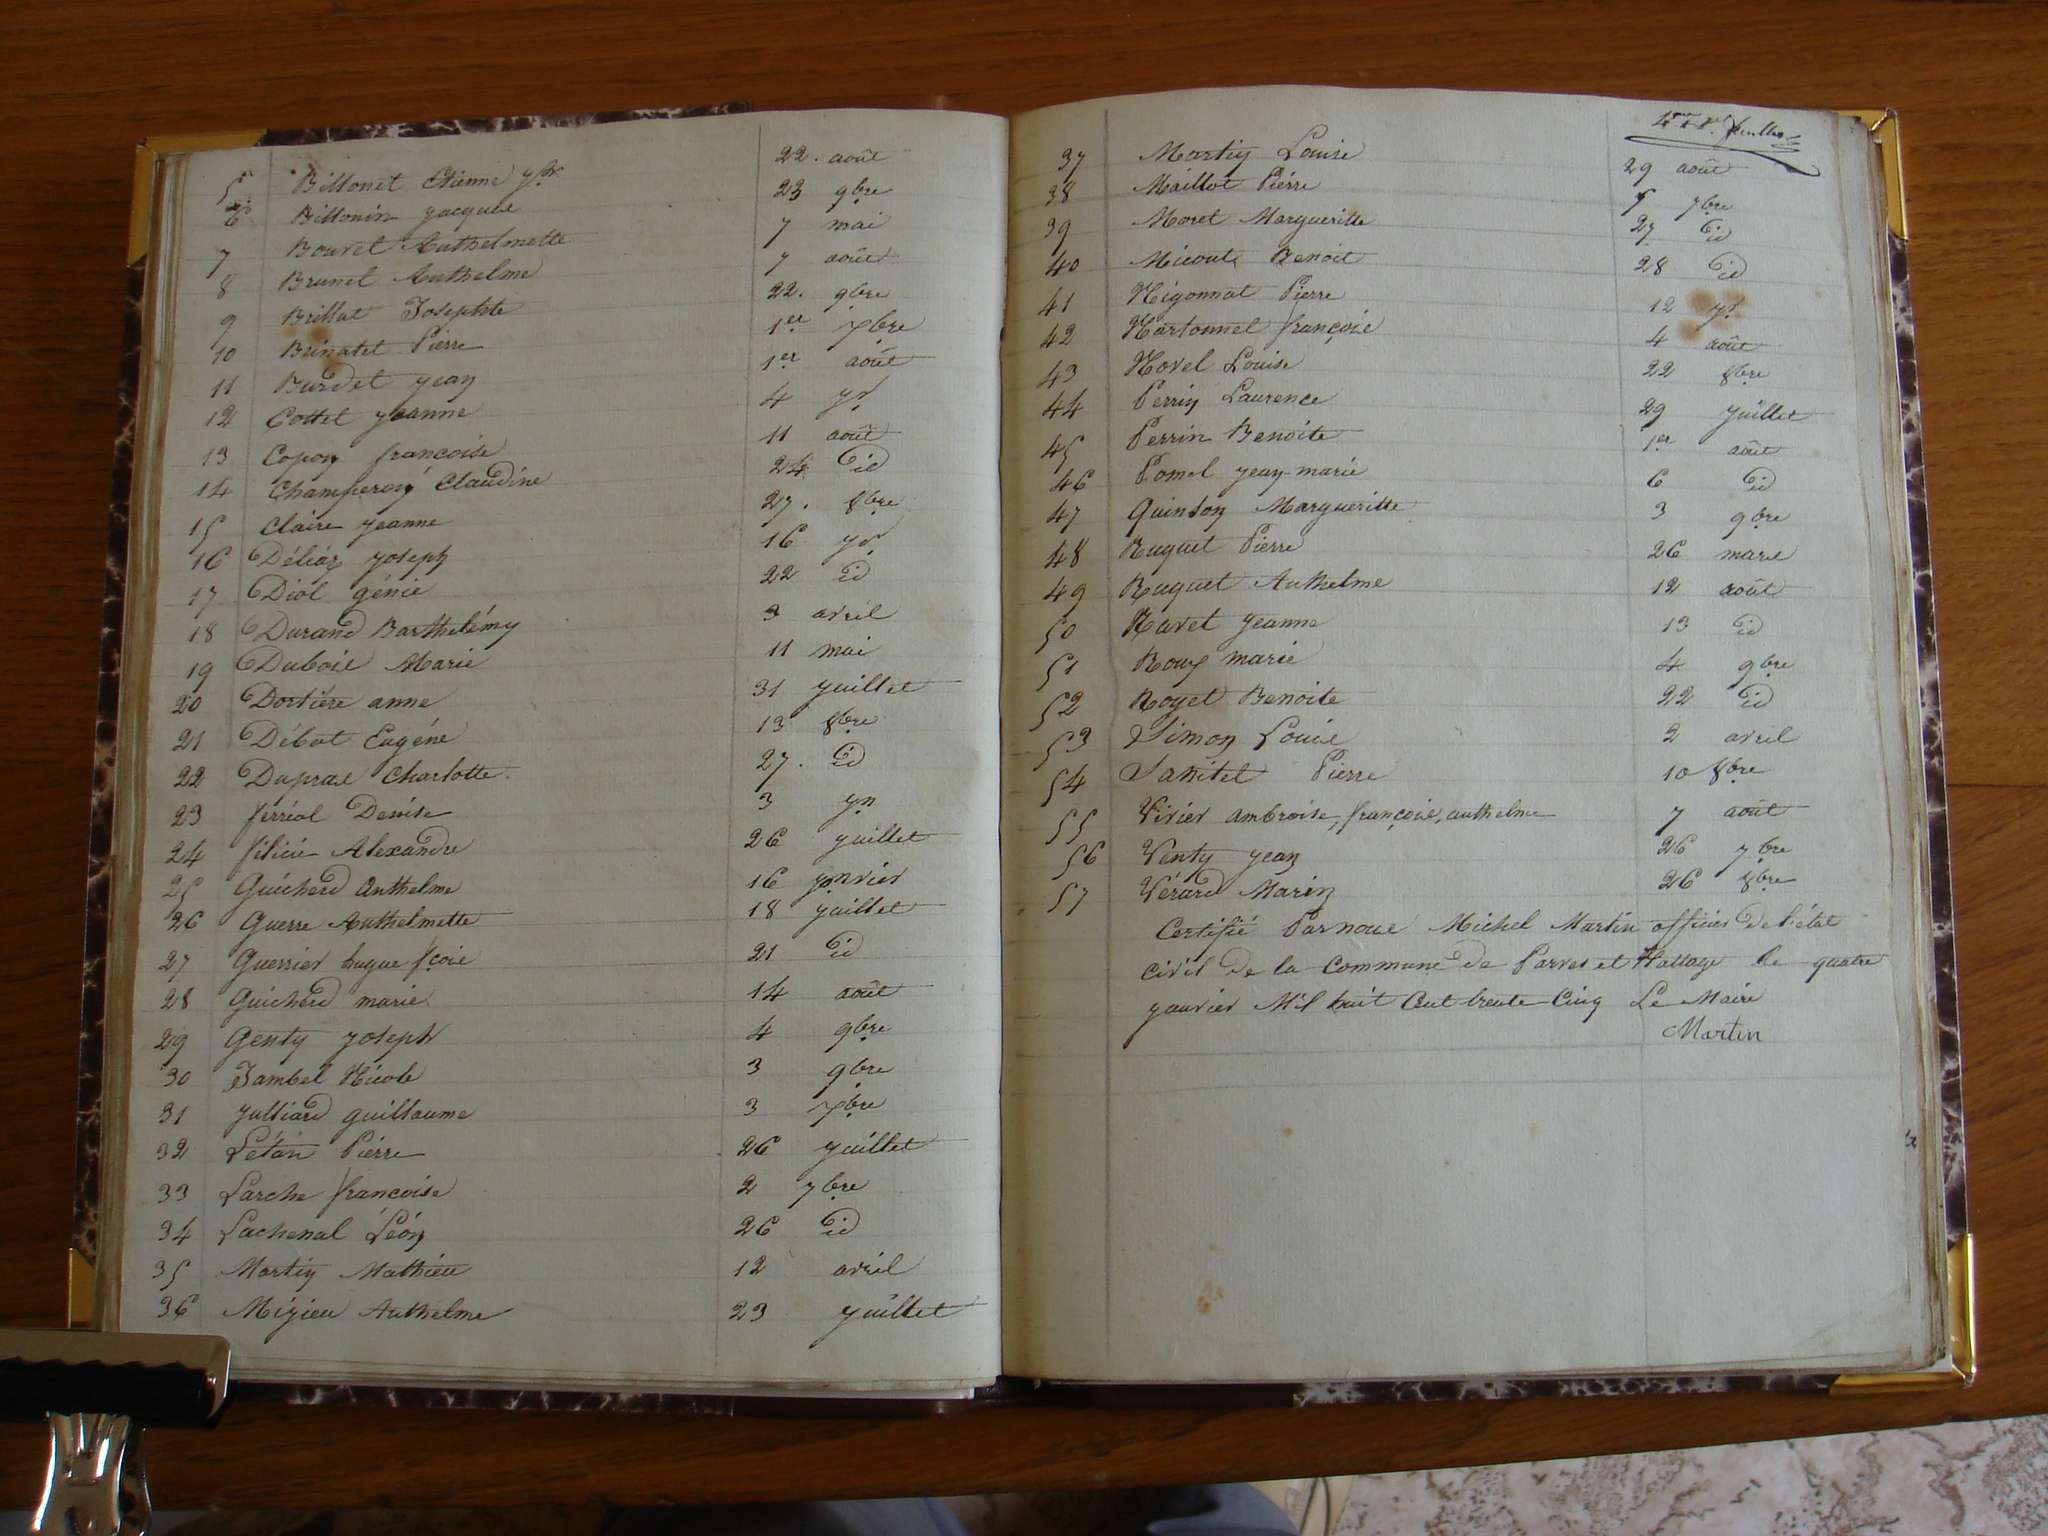 5 Billonet Etienne 22. août
6 Billonin Jacques 23 9bre
7 Bouvet Anthelmette 7 mai
8 Brunet Anthelme 7 août
9 Brillat Josephte 22. 9bre
10 Brinatet Pierre 1er 7bre
11 Burdet jean 1er août
12 Cottet jeanne 4
13 Copon francoise 11 août
14 Champeron Claudine 24 id
15 Claire jeanne 27. 8bre
16 Déliaz joseph 16
17 Diot génie 22 id
18 Durand Barthelémy 3 avril
19 Dubois Marie 11 mai
20 Dortière anne 31 juillet
21 Débat Eugéne 13 8bre
22 Dupras Charlotte 27. id
23 ferréol Denise 3
24 Alexandre 26 juillet
25 Guicherd Anthelme 16 janvier
26 Guerre Anthelmette 18 juillet
27 Guerrier hugue fçois 21 id
28 Guicherd marie 14 août
29 Genty joseph 4 9bre
30 Jambet Nicole 3 9bre
31 julliard guillaume 3 7bre
32 Létan Pierre 26 juillet
33 Larche francoise 2 7bre
34 Lachenal Léon 26 id
35 Martin Mathieu 12 avril
36 Migieu Anthelme 23 juillet
4me et
37 Martin Louise 29 août
38 Maillot Pierre 7bre
39 Moret Margueritte 27 id
40 Micoute Benoit 28 id
41 Nigonnat Pierre 12
42 Nartonnet françois 4 août
43 Novel Louise 22 8bre
44 Perrin Laurence 29 juillet
45 Perrin Benoite 1er août
46 Pomel jean-marie 6 id
47 Quinson Margueritte 3 9bre
48 Ruguet Pierre 26 mars
49 Ruguet Anthelme 12 août
50 Ravet jeanne 13 id
51 Roux marie 4 9bre
52 Royet Benoite 22 id
53 Simon Louis 2 avril
54 Tanitet Pierre 10 8bre
55 Vivier ambroise, françois, anthelme 7 août
56 Venty jean 26 7bre
57 Vérard Marin 26 8bre
Certifié Parnous Michel Martin officier de l'état
civil de la Commune de Parves et Nattage le quatre
janvier Mil huit Cent trente Cinq Le Maire
Martin